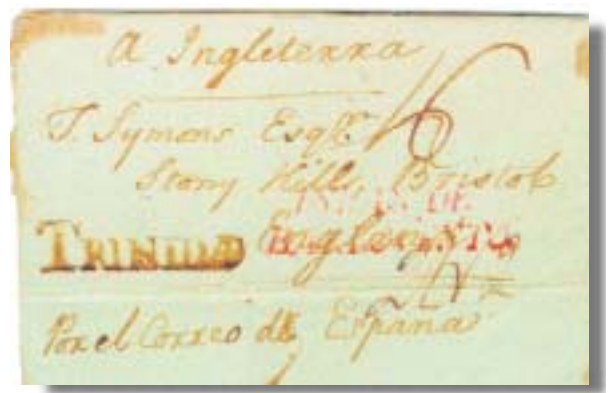 A Ingleterra
T. Symons Esqr.
Stony Hills, Bristol
TRINIDAD England
Por el Correo de España